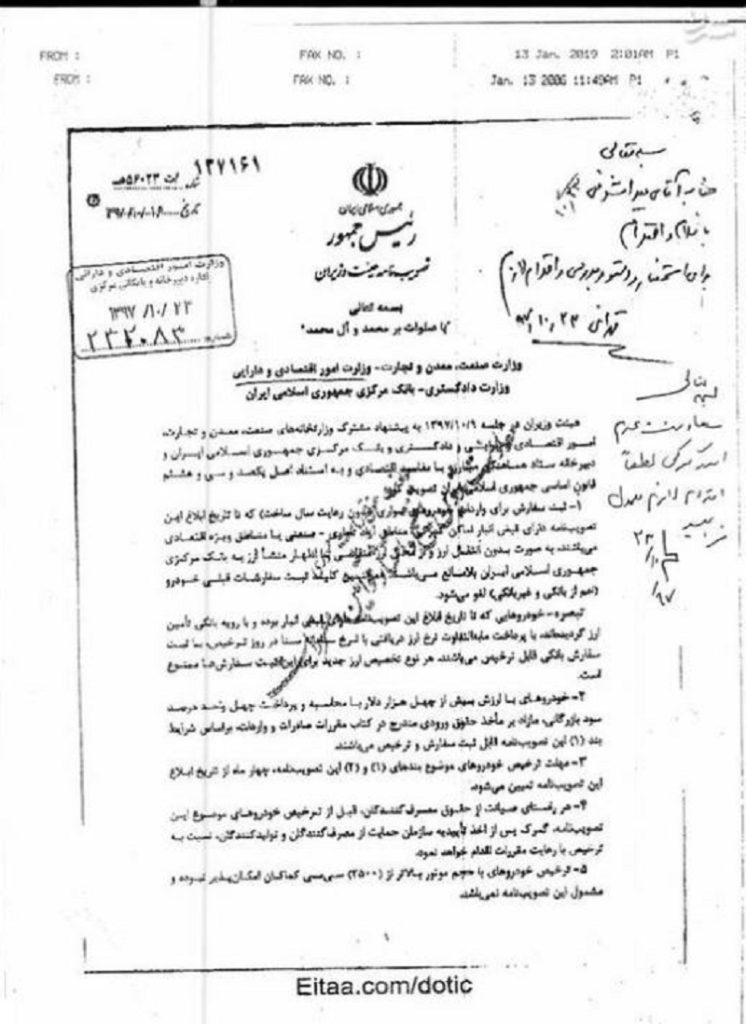 FROM : FAX NO. : 13 Jan. 2019 2:01AM P1
FROM : FAX NO. : Jan. 13 2006 11:49AM P1
۱۳۷۱۶۱
جمهوری اسلامی ایران
رئیس جمهور
تصویب‌نامه هیئت وزیران
بسمه تعالی
"با صلوات بر محمد و آل محمد"
وزارت امور اقتصادی و دارایی
اداره دبیرخانه و بایگانی مرکزی
۱۳۹۷/۱۰/۲۳
۲۳۲۰۸۳
بسمه تعالی
با سلام و احترام
۹۷/۱۰/۲۳
وزارت صنعت، معدن و تجارت- وزارت امور اقتصادی و دارایی
وزارت دادگستری- بانک مرکزی جمهوری اسلامی ایران
هیئت وزیران در جلسه ۱۳۹۷/۱۰/۹ به پیشنهاد مشترک وزارتخانه‌های صنعت، معدن و تجارت،
امور اقتصادی و دارایی و دادگستری و بانک مرکزی جمهوری اسلامی ایران و
دبیرخانه ستاد هماهنگی مبارزه با مفاسد اقتصادی و به استناد اصل یکصد و سی و هشتم
قانون اساسی جمهوری اسلامی ایران تصویب کرد:
۱- ثبت سفارش برای واردات خودروهای سواری (بدون رعایت سال ساخت) که تا تاریخ ابلاغ این
تصویب‌نامه دارای قبض انبار اماکن گمرکی، مناطق آزاد تجاری - صنعتی یا مناطق ویژه اقتصادی
می‌باشند، به صورت بدون انتقال ارز و از محل ارز متقاضی با اظهار منشأ ارز به بانک مرکزی
جمهوری اسلامی ایران بلامانع می‌باشد. همچنین کلیه ثبت سفارشات قبلی خودرو
(اعم از بانکی و غیربانکی) لغو می‌شود.
تبصره- خودروهایی که تا تاریخ ابلاغ این تصویب‌نامه دارای قبض انبار بوده و با رویه بانکی تأمین
ارز گردیده‌اند، با پرداخت مابه‌التفاوت نرخ ارز دریافتی با نرخ سامانه سنا در روز ترخیص، با ثبت
سفارش بانکی قابل ترخیص می‌باشند. هر نوع تخصیص ارز جدید برای این ثبت سفارش‌ها ممنوع
است.
۲- خودروهای با ارزش بیش از چهل هزار دلار با محاسبه و پرداخت چهل واحد درصد
سود بازرگانی، مازاد بر مأخذ حقوق ورودی مندرج در کتاب مقررات صادرات و واردات، براساس شرایط
بند (۱) این تصویب‌نامه قابل ثبت سفارش و ترخیص می‌باشند.
۳- مهلت ترخیص خودروهای موضوع بندهای (۱) و (۲) این تصویب‌نامه، چهار ماه از تاریخ ابلاغ
این تصویب‌نامه تعیین می‌شود.
۴- در راستای صیانت از حقوق مصرف‌کنندگان، قبل از ترخیص خودروهای موضوع این
تصویب‌نامه، گمرک پس از اخذ تأییدیه سازمان حمایت از مصرف‌کنندگان و تولیدکنندگان، نسبت به
ترخیص با رعایت مقررات اقدام خواهد نمود.
۵- ترخیص خودروهای با حجم موتور بالاتر از (۲۵۰۰) سی‌سی کماکان امکان‌پذیر نبوده و
مشمول این تصویب‌نامه نمی‌باشند.
۱
Eitaa.com/dotic